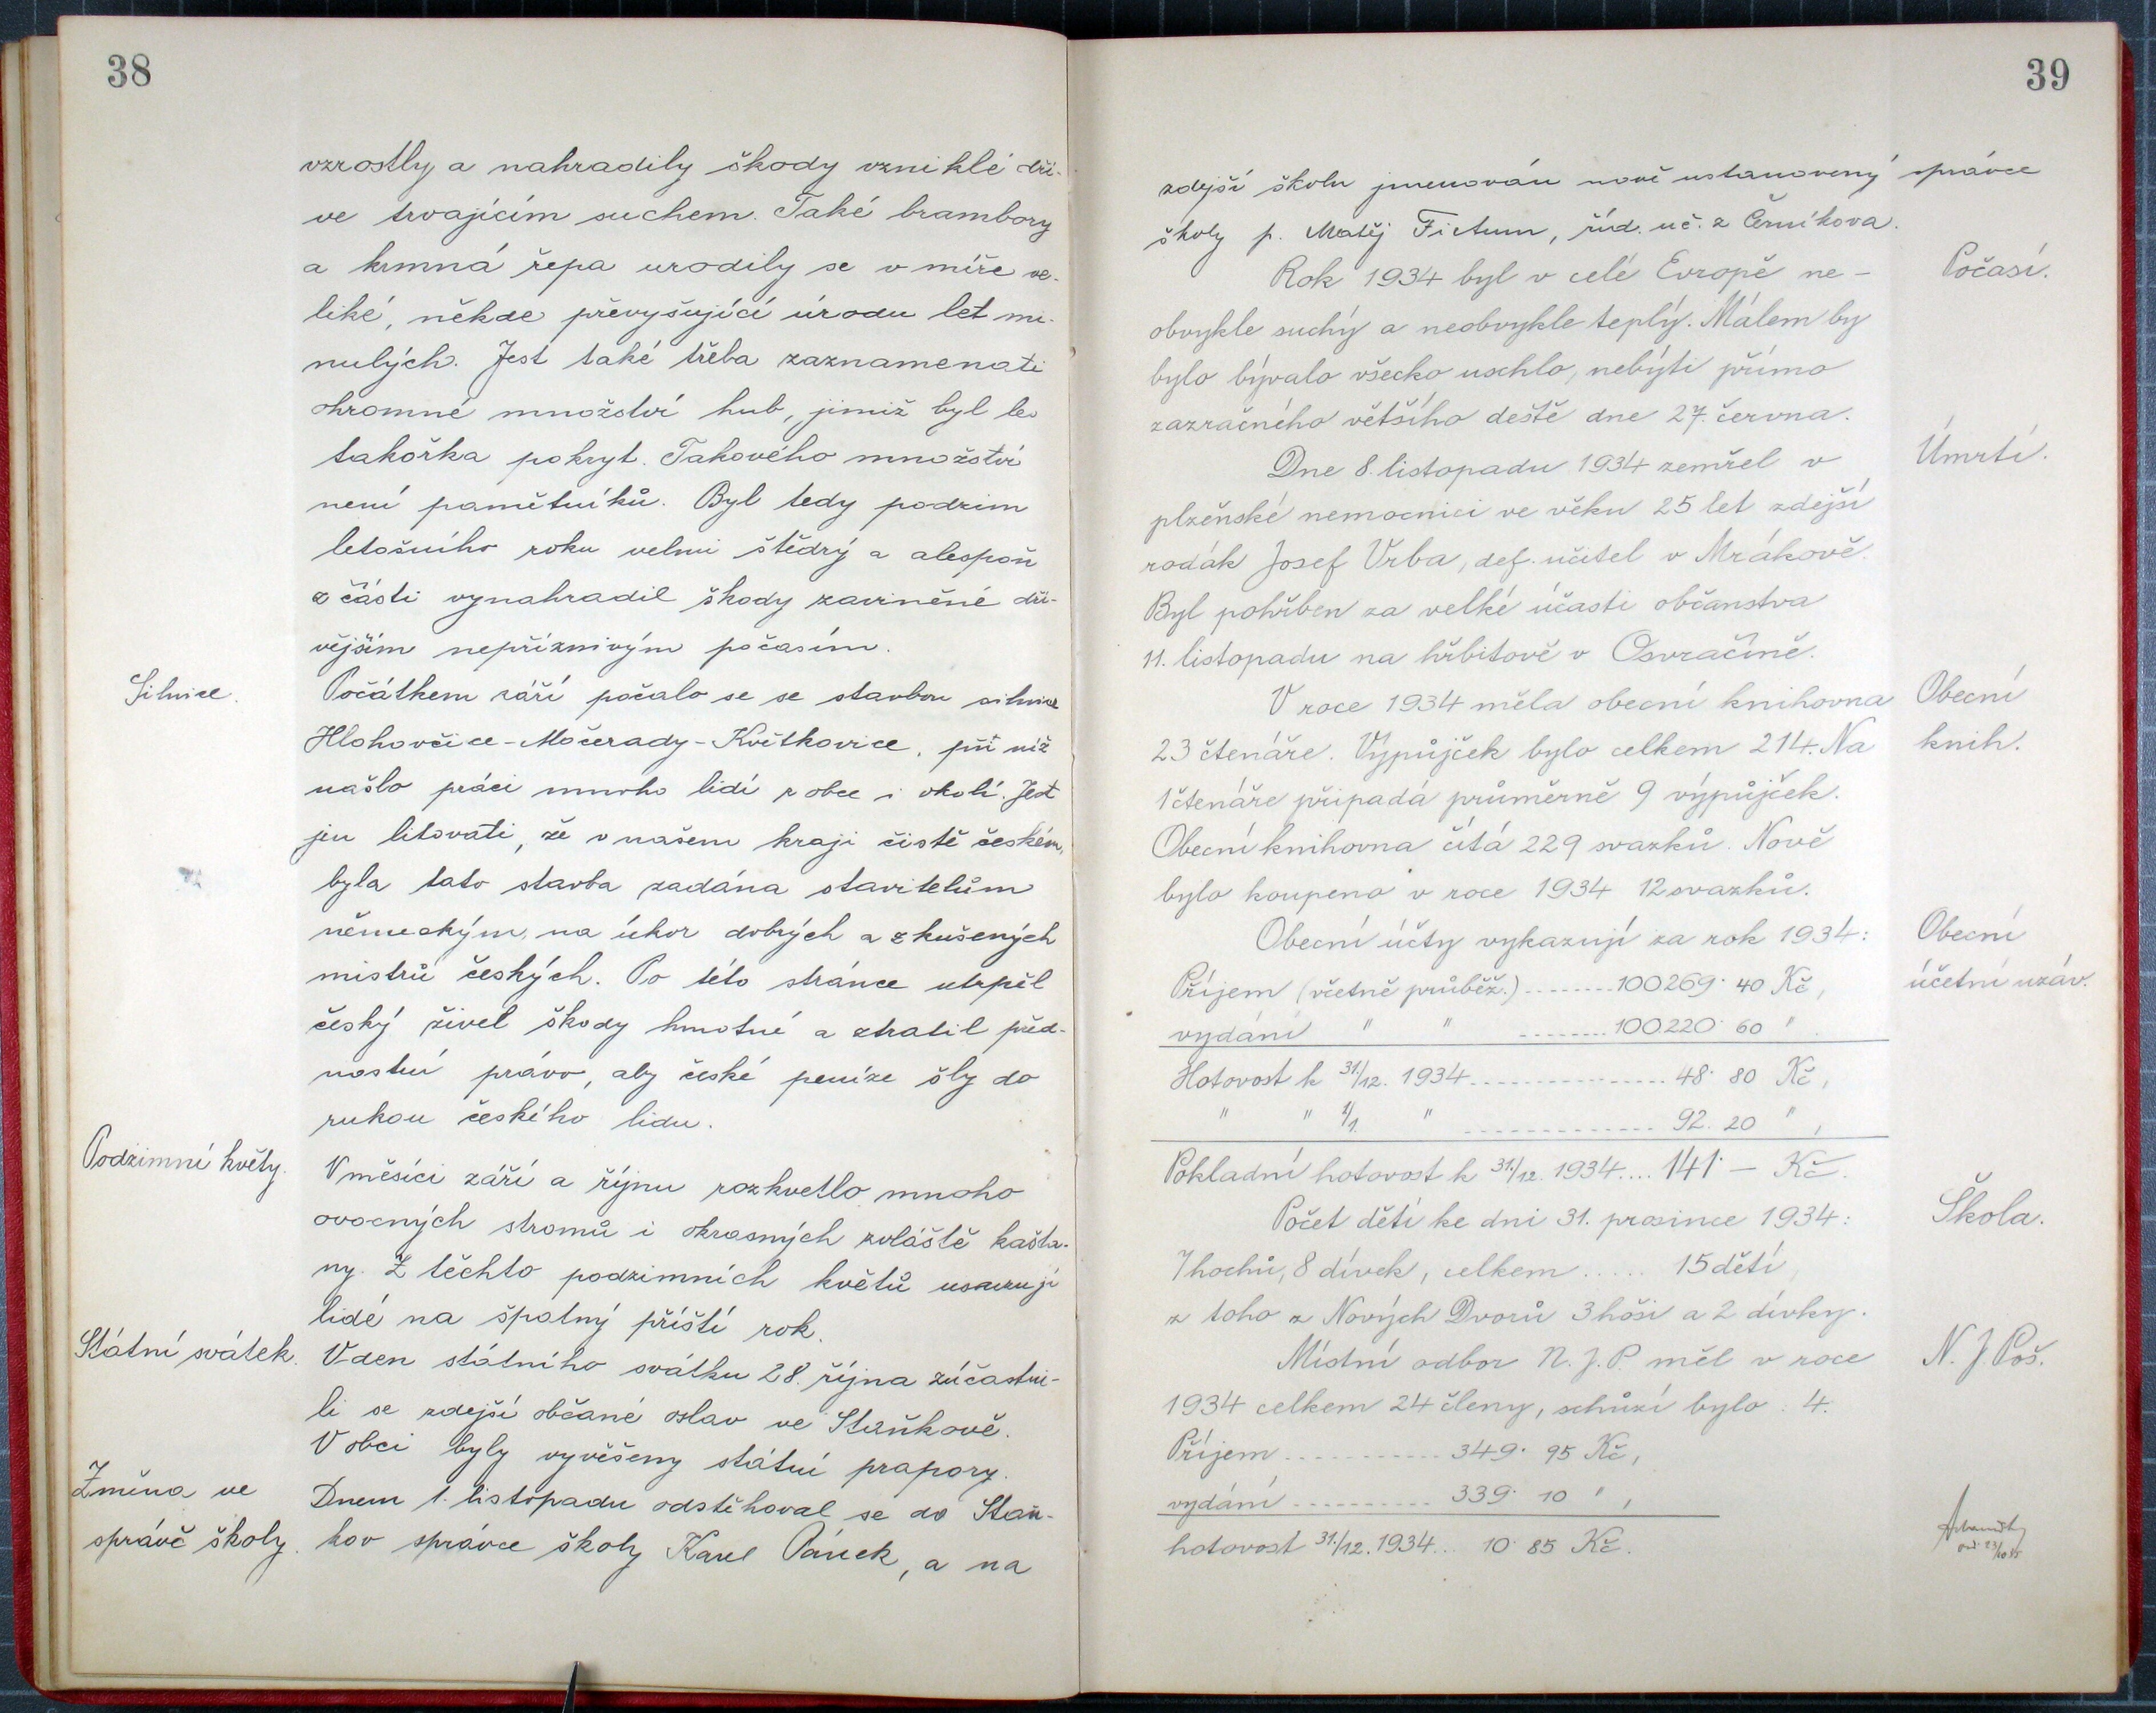 38
vzrostly a nahradily škody vzniklé dří-
ve trvajícím suchem. Také brambory
a krmná řepa urodily se v míře ve-
liké, někde převyšující úrodu let mi-
nulých. Jest také třeba zaznamenati
ohromné množství hub, jimiž byl les
takořka pokryt. Takového množství
není pamětníků. Byl tedy podzim
letošního roku velmi štědrý a alespoň
z části vynahradil škody zaviněné dří-
vějším nepříznivým počasím.
Silnice.
Počátkem září počalo se se stavbou silnice
Hlohovčice-Močerady-Květkovice, při níž
našlo práci mnoho lidí z obce i okolí. Jest
jen litovati, že v našem kraji čistě českém,
byla tato stavba zadána stavitelům
německým, na úkor dobrých a zkušených
mistrů českých. Po této stránce utrpěl
český živel škody hmotné a ztratil před-
nostní právo, aby české peníze šly do
rukou českého lidu.
Podzimní květy.
V měsíci září a říjnu rozkvetlo mnoho
ovocných stromů i okrasných zvláště kašta-
ny. Z těchto podzimních květů usuzují
lidé na špatný příští rok.
Státní svátek.
V den státního svátku 28. října zúčastni-
li se zdejší občané oslav ve Staňkově.
V obci byly vyvěšeny státní prapory.
Změna ve
správě školy.
Dnem 1. listopadu odstěhoval se do Staň-
kov správce školy Karel Pánek, a na
39
zdejší školu jmenován nově ustanovený správce
školy p. Matěj Fictum, říd. uč. z Černíkova.
Počasí.
Rok 1934 byl v celé Evropě ne-
obvykle suchý a neobvykle teplý. Málem by
bylo bývalo všecko uschlo, nebýti přímo
zazračného většího deště dne 27. června.
Úmrtí.
Dne 8. listopadu 1934 zemřel v
plzeňské nemocnici ve věku 25 let zdejší
rodák Josef Vrba, def. učitel v Mrákově.
Byl pohřben za velké účasti občanstva
11. listopadu na hřbitově v Osvračíně.
Obecní
knih.
V roce 1934 měla obecní knihovna
23 čtenáře. Výpůjček bylo celkem 214. Na
1 čtenáře připadá průměrně 9 výpůjček.
Obecní knihovna čítá 229 svazků. Nově
bylo koupeno v roce 1934 12 svazků.
Obecní
účetní uzáv.
Obecní účty vykazují za rok 1934:
Příjem (včetně průběž.) ........ 100269· 40 Kč,
vydání " " ........ 100220· 60 " .
Hotovost k 31./12. 1934 ................ 48· 80 Kč,
" " 1/1. " .............. 92. 20 " ,
Pokladní hotovost k 31./12. 1934.... 141·— Kč.
Škola.
Počet dětí ke dni 31. prosince 1934:
7 hochů, 8 dívek, celkem ..... 15 dětí,
z toho z Nových Dvorů 3 hoši a 2 dívky.
N. J. Poš.
Místní odbor N. J. P. měl v roce
1934 celkem 24 členy, schůzí bylo 4.
Příjem ............ 349· 95 Kč,
vydání .......... 339· 10 " ,
hotovost 31./12. 1934... 10· 85 Kč.